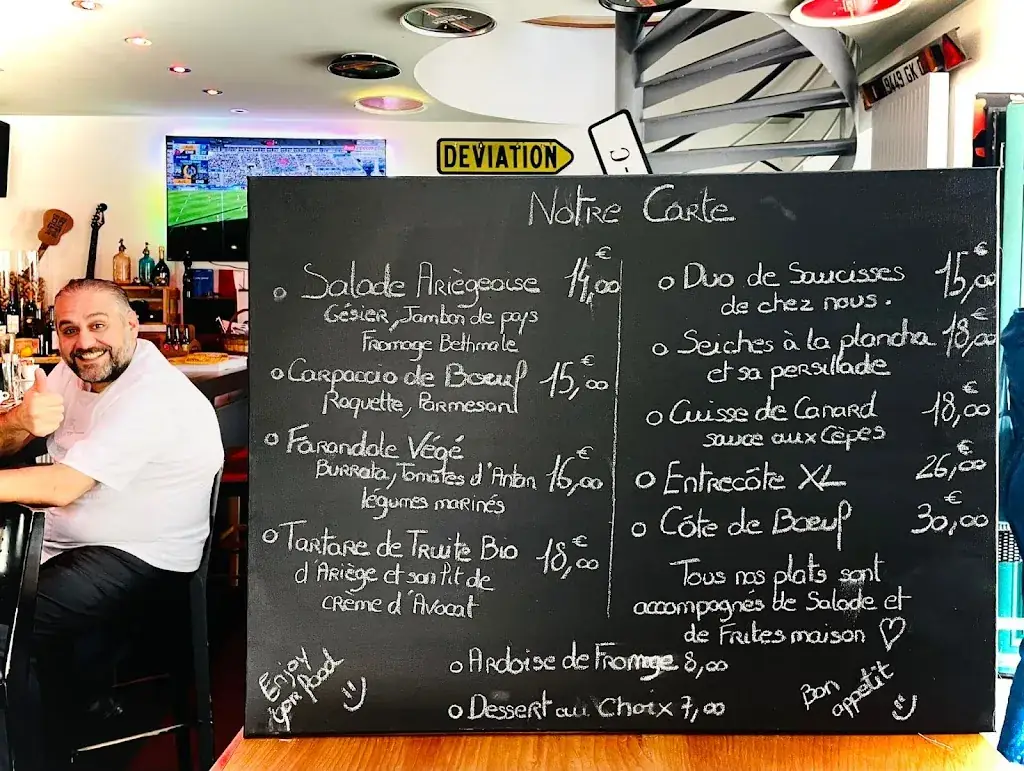 DEVIATION
9449 GK 0
Notre Carte
o Salade Ariègeoise 14,00€
Gésier, Jambon de pays
Fromage Bethmale
o Carpaccio de Boeuf 15,00€
Roquette, Parmesan
o Farandole Végé
Burrata, Tomates d'Antan 16,00€
légumes marinés
o Tartare de Truite Bio 18,00€
d'Ariège et son lit de
crème d'Avocat
o Duo de Saucisses 15,00€
de chez nous.
o Seiches à la plancha 18,00€
et sa persillade
o Cuisse de Canard 18,00€
sauce aux Cèpes
o Entrecôte XL 26,00€
o Côte de Boeuf 30,00€
Tous nos plats sont
accompagnés de Salade et
de Frites maison ♡
o Ardoise de Fromage 8,00
o Dessert au Choix 7,00
Enjoy
your food :)
Bon
appetit :)